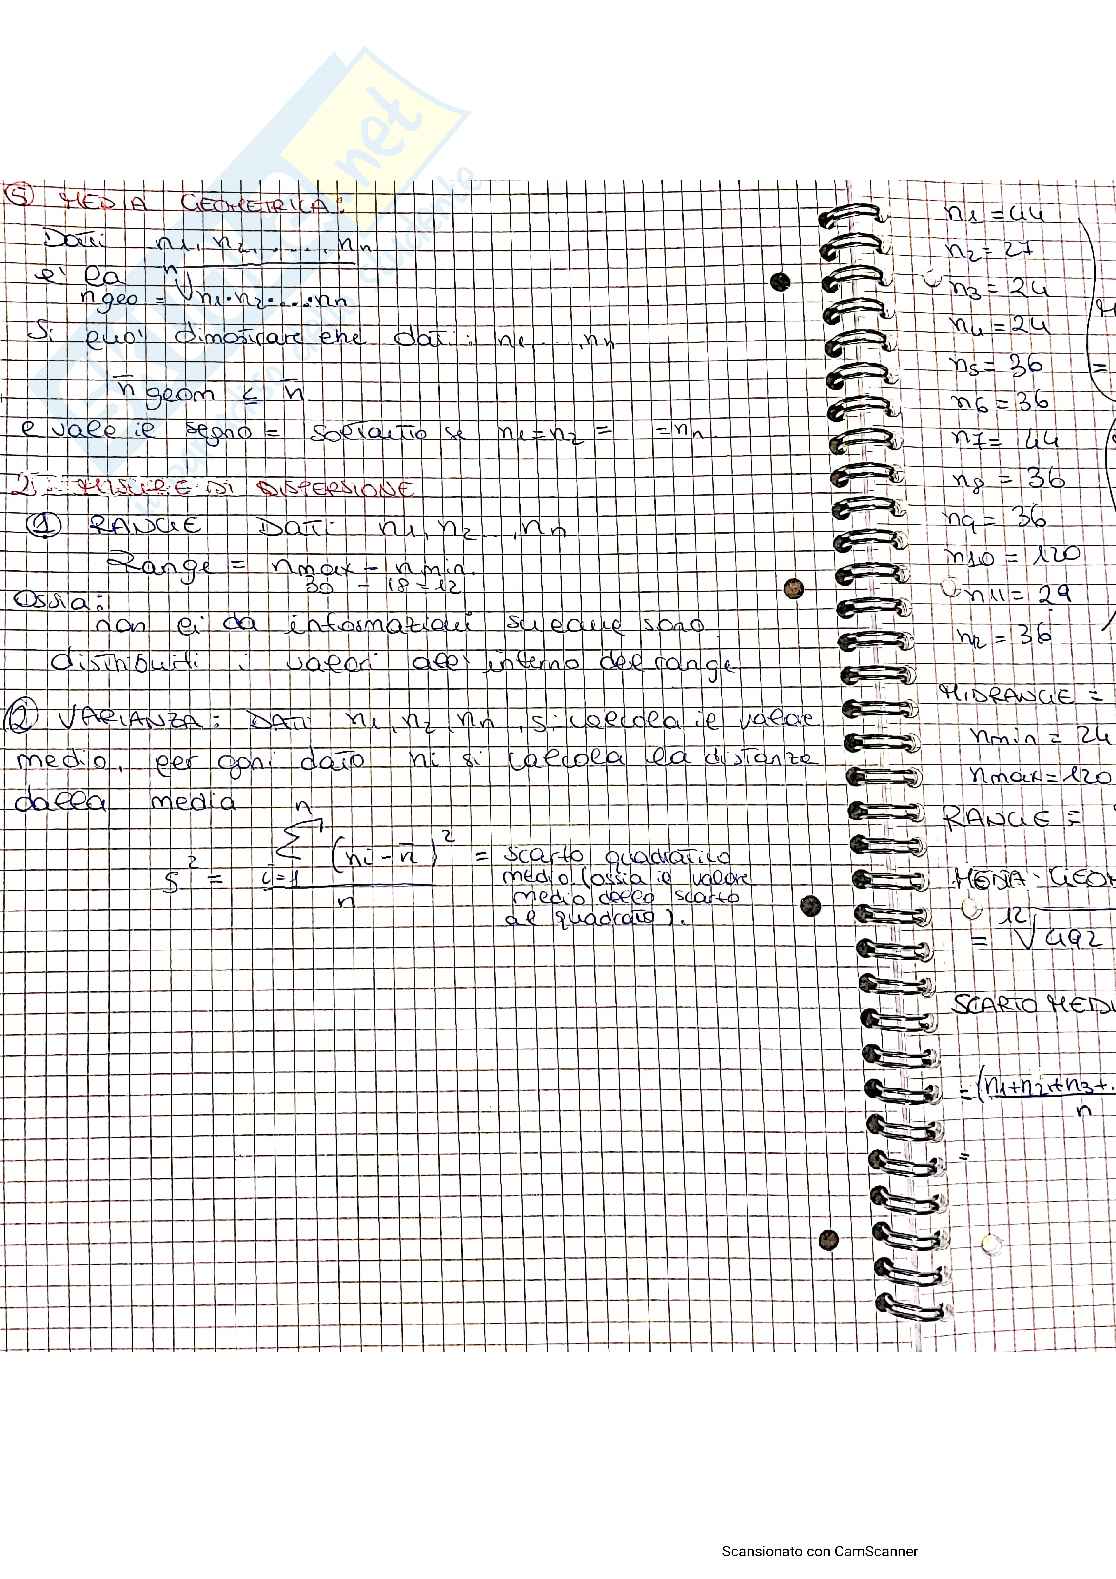 ⑤ MEDIA GEOMETRICA:
DATI n1, n2, ...., nn
e' la
ngeo = ⁿ√n1·n2·...·nn
Si può dimostrare che dati: n1 ... nn
n̄ geom ≤ n̄
e vale il segno = soltanto se n1=n2 = =nn.
2. MISURE DI DISPERSIONE
① RANGE DATI n1, n2 ..., nn
Range = nmax - nmin.
30 - 18 = 12
Ossia:
non ci da informazioni su come sono
distribuiti i valori all' interno del range
② VARIANZA: DATI n1, n2, nn, si calcola il valore
medio, per ogni dato ni si calcola la distanza
dalla media
s² = n ∑ i=1 (ni - n̄)² / n = scarto quadratico
medio (ossia il valore
medio dello scarto
al quadrato).
n1 = 44
n2 = 27
n3 = 24
n4 = 24
n5 = 36 =
n6 = 36
n7 = 44
n8 = 36
n9 = 36
n10 = 120
n11 = 29
n12 = 36
MIDRANGE =
nmin = 24
nmax = 120
RANGE =
MEDIA GEOM
= ¹²√492
SCARTO MEDI
= (n1+n2+n3+.
n
=
.net
Scansionato con CamScanner